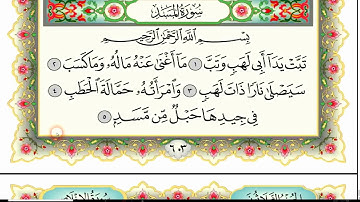 سُورَةُ المَسَدِ
بِسْمِ اللَّهِ الرَّحْمَٰنِ الرَّحِيمِ
تَبَّتْ يَدَا أَبِي لَهَبٍ وَتَبَّ ١ مَا أَغْنَىٰ عَنْهُ مَالُهُ وَمَا كَسَبَ ٢
سَيَصْلَىٰ نَارًا ذَاتَ لَهَبٍ ٣ وَامْرَأَتُهُ حَمَّالَةَ الْحَطَبِ ٤
فِي جِيدِهَا حَبْلٌ مِّن مَّسَدٍ ٥
٦٠٣